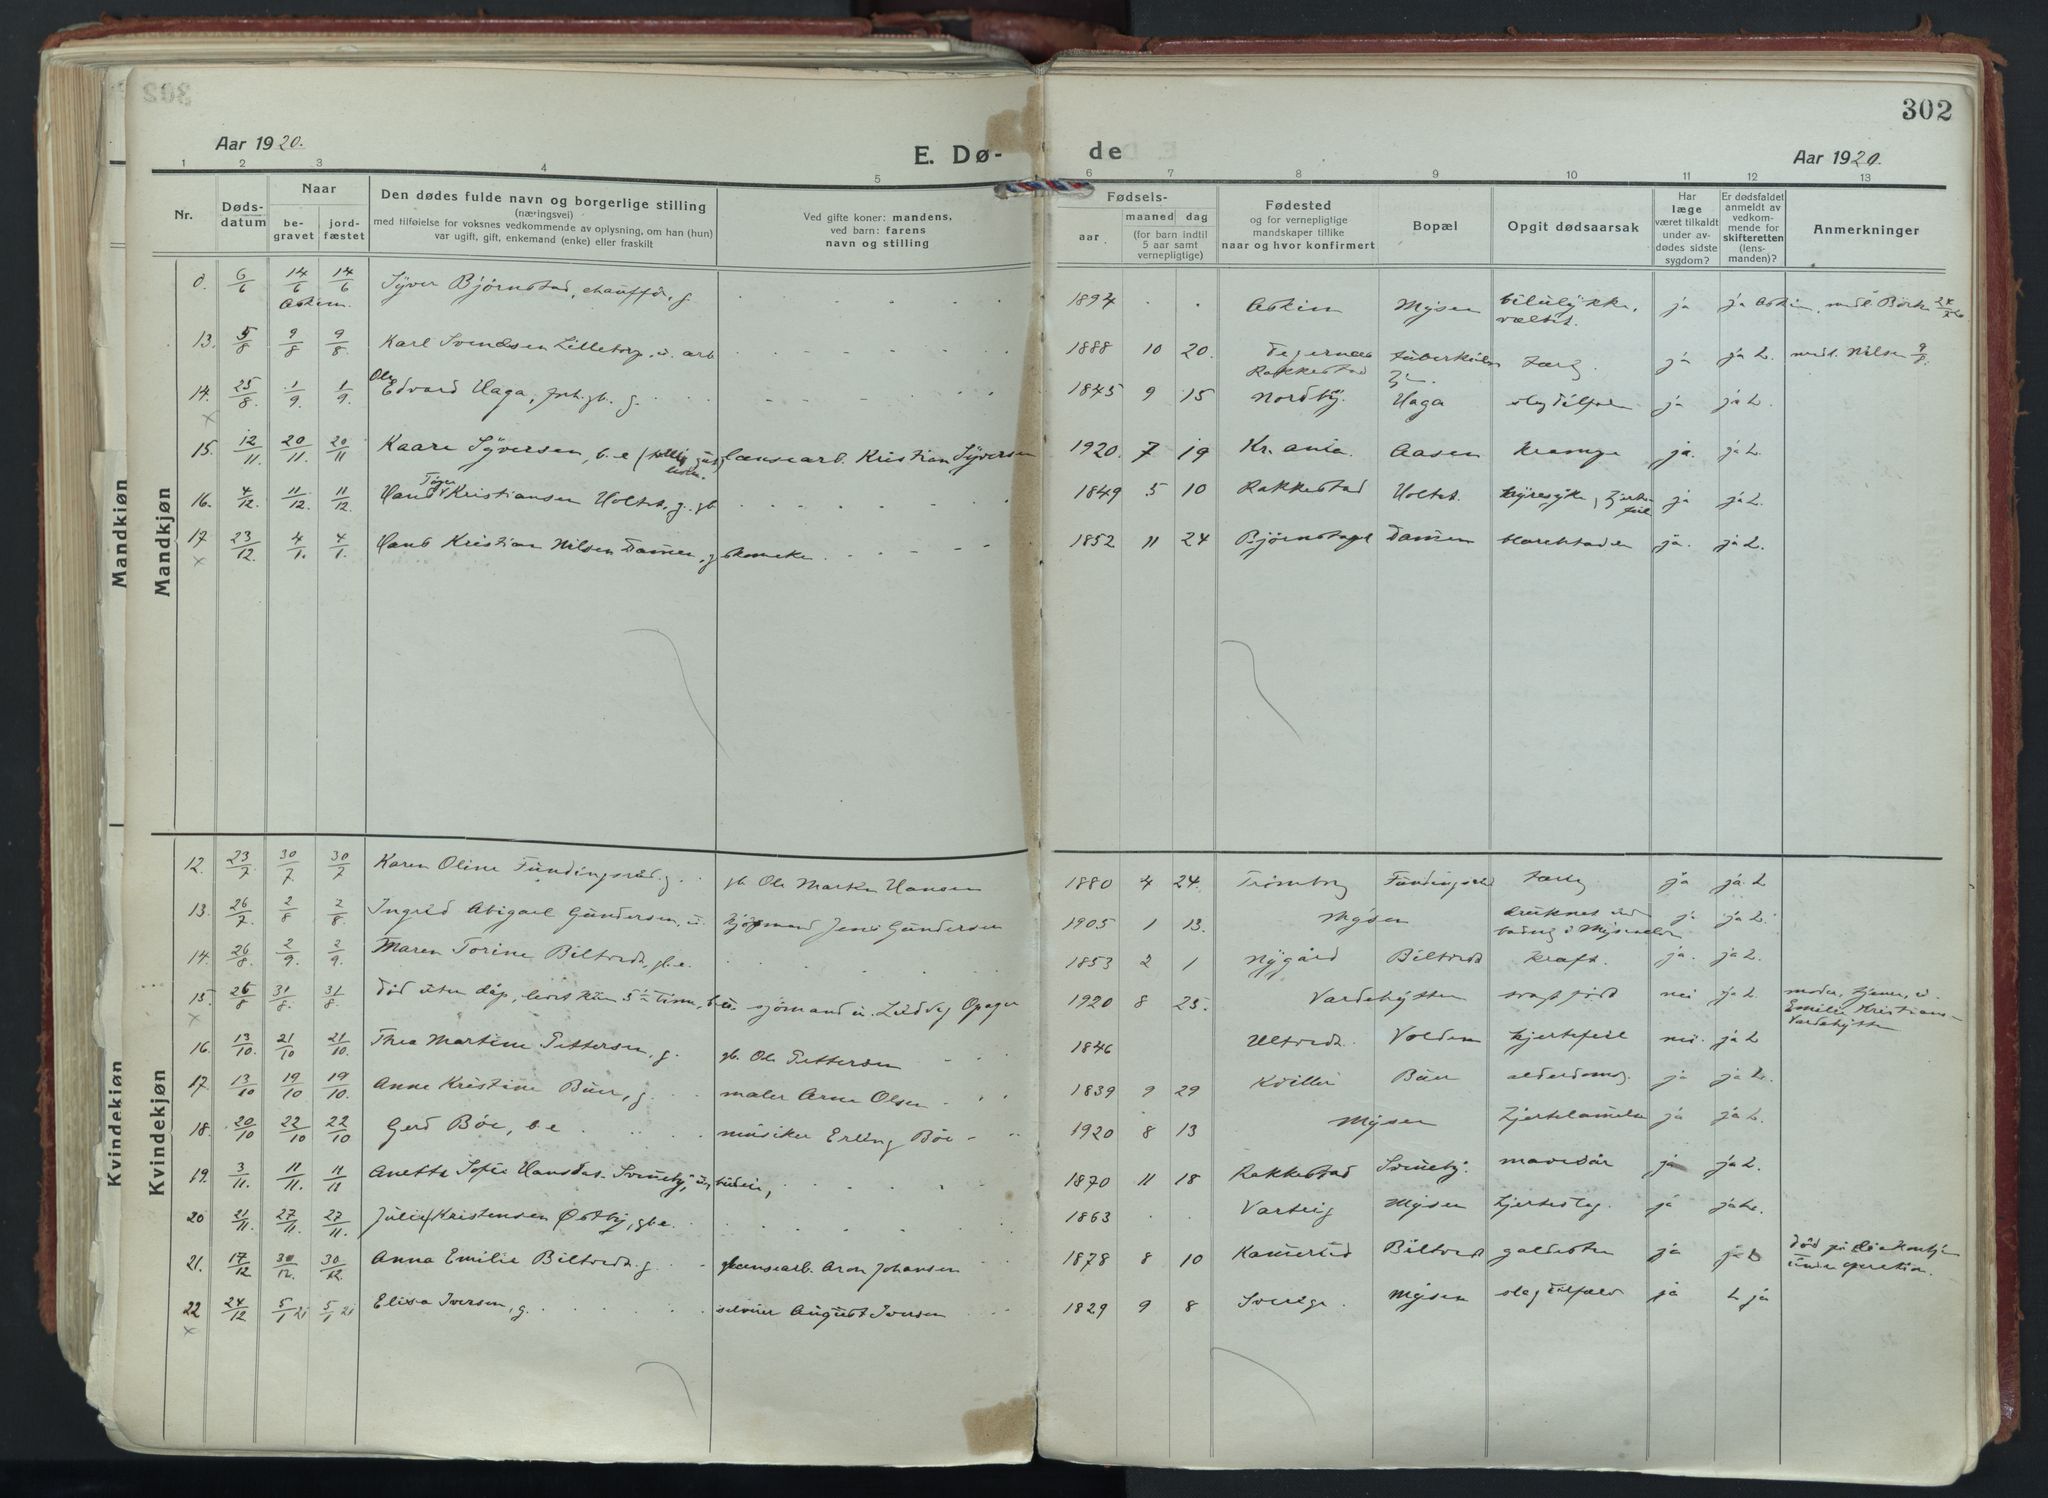 302
Aar 1920.
E. Dø-
de
Aar 1920.
1 2 3 4 5 6 7 8 9 10 11 12 13
Nr.
Døds-
datum
Naar
be-
gravet
jord-
fæstet
Den dødes fulde navn og borgerlige stilling
(næringsvei)
med tilføielse for voksnes vedkommende av oplysning, om han (hun)
var ugift, gift, enkemand (enke) eller fraskilt
Ved gifte koner: mandens,
ved barn: farens
navn og stilling
Fødsels-
aar
maaned
dag
(for barn indtil
5 aar samt
vernepligtige)
Fødested
og for vernepligtige
mandskaper tillike
naar og hvor konfirmert
Bopæl
Opgit dødsaarsak
Har
læge
været tilkaldt
under av-
dødes sidste
sygdom?
Er dødsfaldet
anmeldt av
vedkom-
mende for
skifteretten
(lens-
manden)?
Anmerkninger
Mandkjøn
Mandkjøn
0. 6/6 14/6 Askim 14/6 Syver Bjørnstad, chauffør, g. 1894 Askim Mysen bilulykke, væltet. ja ja Askim
13. 5/8 9/8 9/8 Karl Svendsen Lilletorp, u. arb 1888 10 20. Degernes Rakkestad tærg ja ja L. Nilsen 9/8
14. 25/8 1/9 1/9 Ole Edvard Haga, g. 1845 9 15 Nordby. Haga slagtilfælde ja ja L.
15. 12/11 20/11 20/11 Kaare Syversen, b. e. lænsearb. Kristian Syversen 1920. 7 19 Kr.ania. Aasen krampe ja. ja L.
16. 4/12. 11/12. 11/12 Hans Kristiansen Holtet, g. gb. 1849 5 10 Rakkestad Holtet. ja ja L.
17 23/12. 4/1. 4/1. Hans Kristian Nilsen Dammen, g. skomaker. 1852 11 24 Dammen ja. ja L.
Kvindekjøn
Kvindekjøn
12. 23/7 30/7 30/7 Karen Oline Fundingsrud. g. gb. Ole Hansen 1880 4 24. Trømborg Fundingsrud tærg ja ja. L
13. 26/7 2/8 2/8. Ingrid Abigael Gundersen, u. kjøpmand Jens Gundersen 1905 1 13. Mysen druknet ved bading i Myselven ja ja L.
14. 26/8 2/9. 2/9. Maren Torine Biltvedt, gb. e. 1853 2 1 Nygård Biltvedt kræft. ja. ja L
15 26/8 31/8. 31/8. død uten dåp, levet kun 5 timer, b. u. sjømand u. Ludvig Opager 1920 8 25. Vardehytten svagt født nei ja L. moder, tjener, u. Emilie Kristians- Vardehytten
16. 13/10. 21/10 21/10. Thea Martine Pettersen, g. gb. Ole Pettersen 1846 Ultvedt. Volden hjertefeil nei. ja L
17. 13/10 19/10 19/10. Anne Kristine Buer, g. maler Arne Olsen 1839 9 29 Buer alderdoms. ja ja L.
18. 20/10 22/10 22/10 Gerd Bøe, b. e musiker Erling Bøe 1920 8 13 Mysen ja ja L.
19. 3/11. 11/11. 11/11 Anette Sofie Hansdat. Svineby, budeie, 1870 11 18 Rakkestad Svineby. mavesår ja ja L.
20 21/11. 27/11. 27/11. Julie Kristensen Østby, gb. e. 1863 Varteig Mysen hjerteslag ja ja L.
21. 17/12 30/12. 30/12. Anna Emilie Biltvedt. g. lænsearb. Aron Johansen 1878 8 10 Biltvedt galdesten ja ja L død på diakonhj. under operation.
22 24/12 5/1 21 5/1 21 Elisa Iversen, g. August Iversen 1829 9 8 Sverige. Mysen slagtilfæld ja L ja